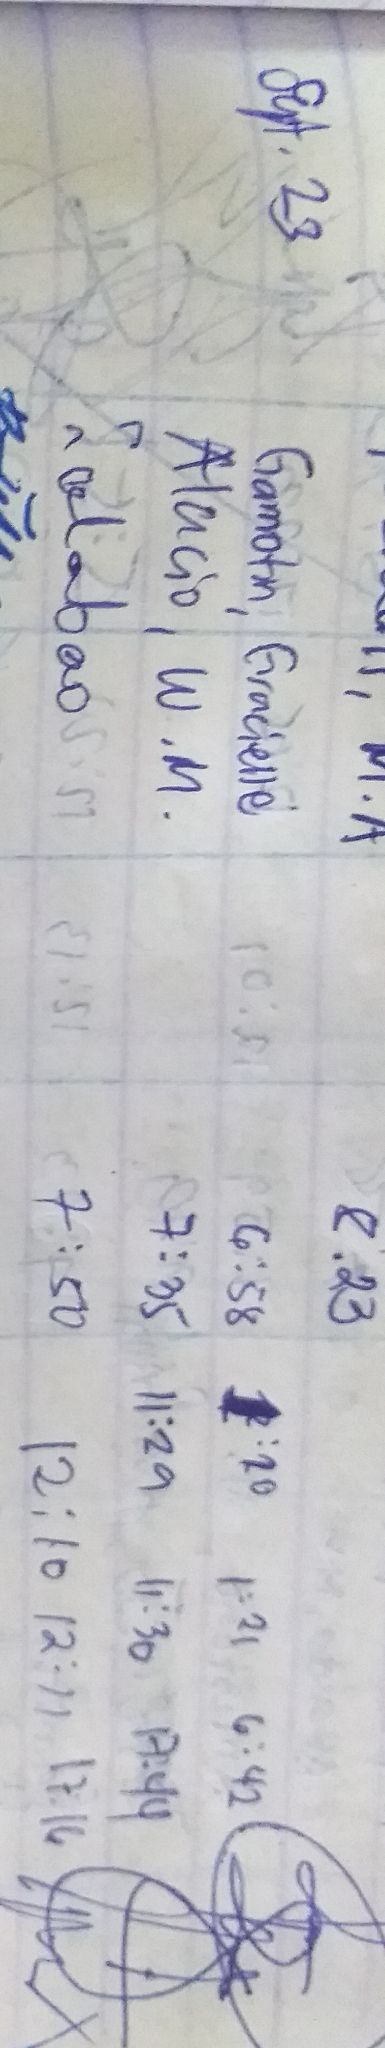 M.A 8:23
Sept. 23 Gamotin, Grachelle 6:58 1:20 1:21 6:42
Alacio, W.M. 7:35 11:29 11:30 17:44
7:50 12:10 12:11 17:16